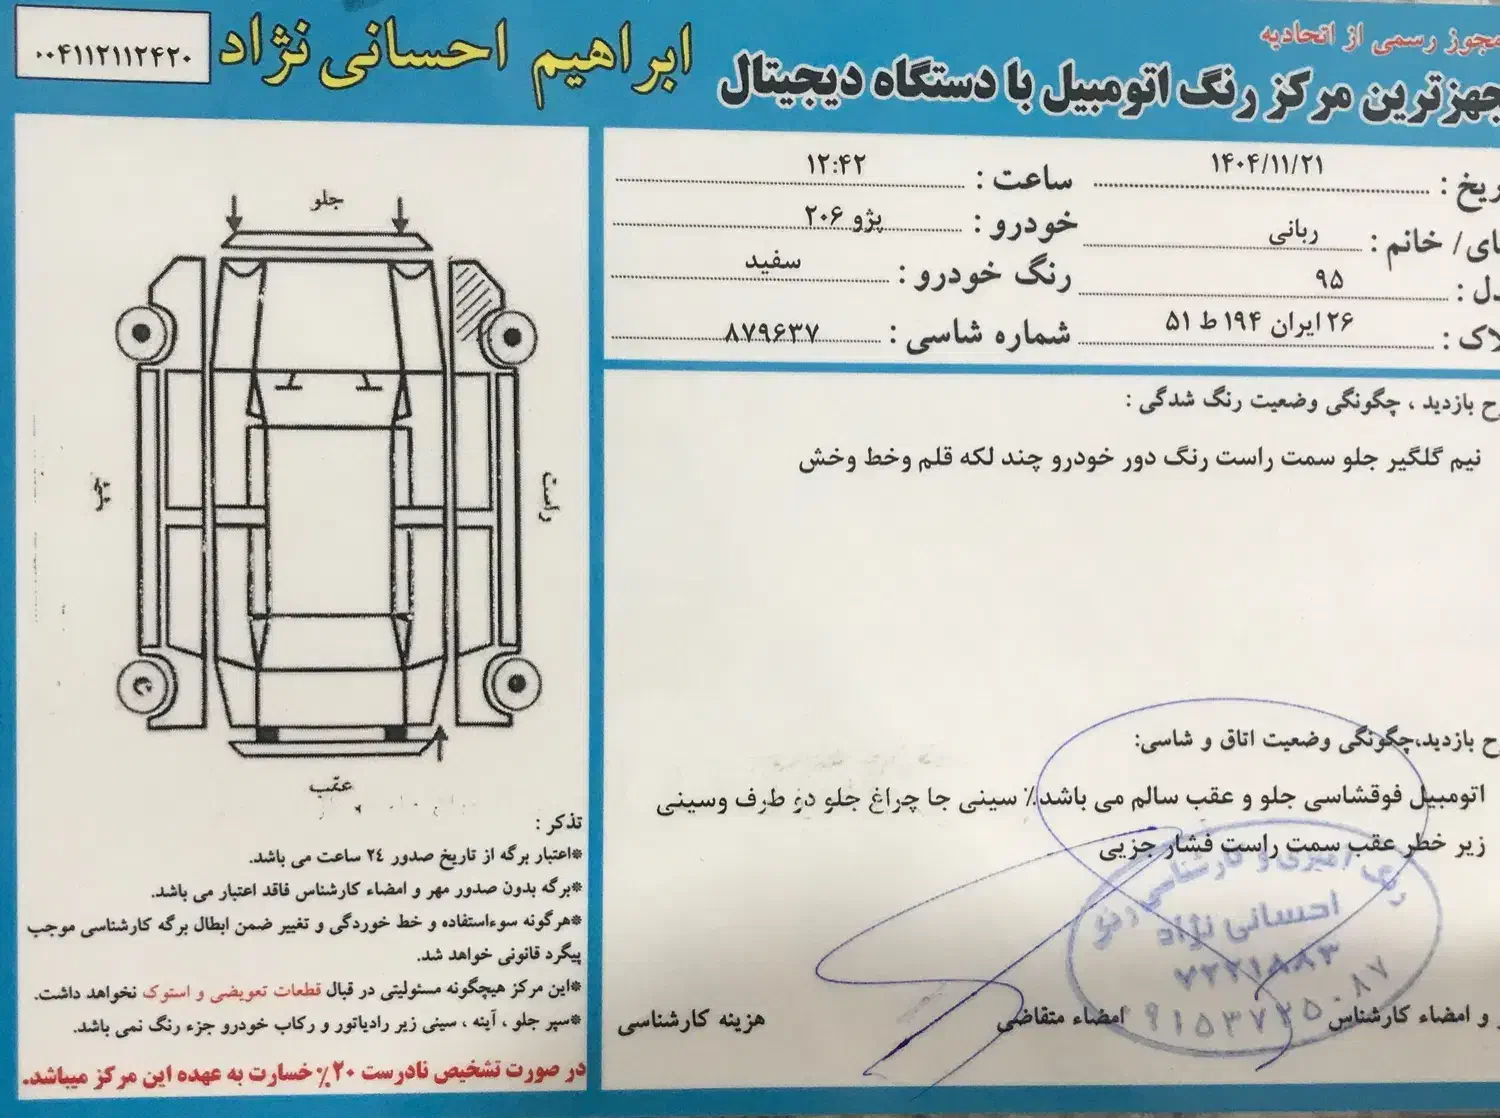 مجوز رسمی از اتحادیه
ابراهیم احسانی نژاد
۰۰۴۱۱۲۱۱۲۴۲۰
جهزترین مرکز رنگ اتومبیل با دستگاه دیجیتال
ریخ : ۱۴۰۴/۱۱/۲۱ ساعت : ۱۲:۴۲
ای/ خانم : ربانی خودرو : پژو ۲۰۶
دل : ۹۵ رنگ خودرو : سفید
لاک : ۲۶ ایران ۱۹۴ ط ۵۱ شماره شاسی : ۸۷۹۶۳۷
ح بازدید ، چگونگی وضعیت رنگ شدگی :
نیم گلگیر جلو سمت راست رنگ دور خودرو چند لکه قلم وخط وخش
ح بازدید،چگونگی وضعیت اتاق و شاسی:
اتومبیل فوقشاسی جلو و عقب سالم می باشد./ سینی جا چراغ جلو دو طرف وسینی
زیر خطر عقب سمت راست فشار جزیی
احسانی نژاد
۷۲۲۱۸۸۳
و امضاء کارشناس امضاء متقاضی هزینه کارشناسی
جلو
راست
عقب
تذکر :
*اعتبار برگه از تاریخ صدور ۲۴ ساعت می باشد.
*برگه بدون صدور مهر و امضاء کارشناس فاقد اعتبار می باشد.
*هرگونه سوءاستفاده و خط خوردگی و تغییر ضمن ابطال برگه کارشناسی موجب
پیگرد قانونی خواهد شد.
*این مرکز هیچگونه مسئولیتی در قبال قطعات تعویضی و استوک نخواهد داشت.
*سپر جلو ، آینه ، سینی زیر رادیاتور و رکاب خودرو جزء رنگ نمی باشد.
در صورت تشخیص نادرست ۲۰٪ خسارت به عهده این مرکز میباشد.